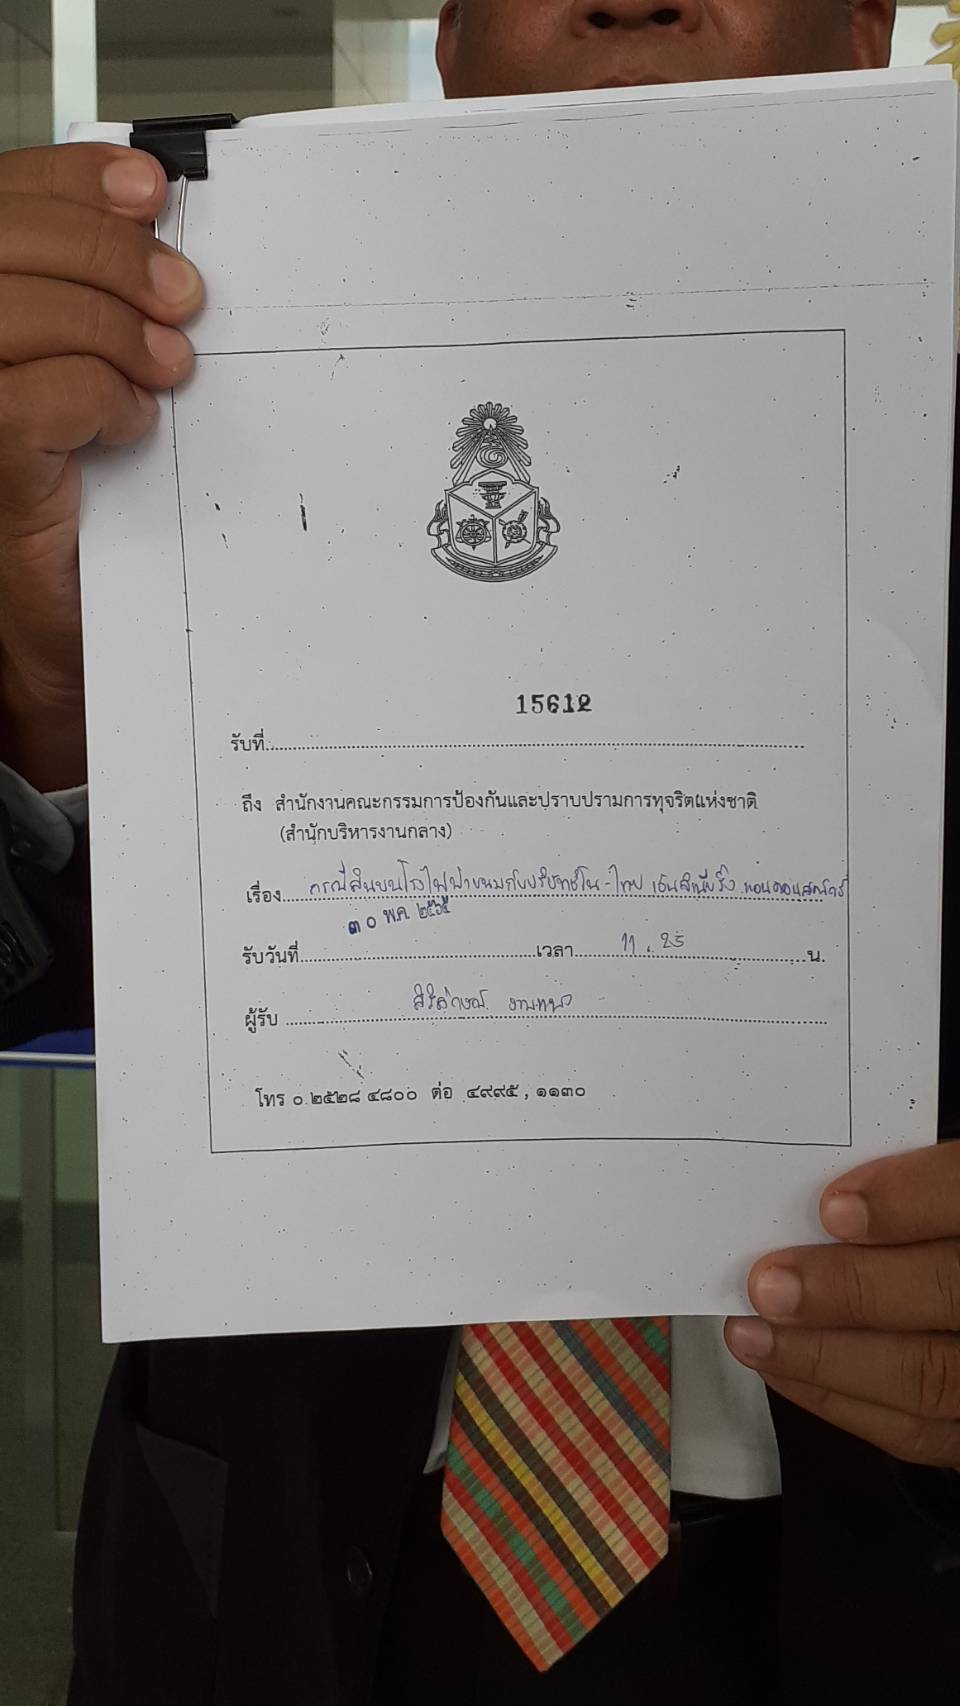 15612
รับที่
ถึง สำนักงานคณะกรรมการป้องกันและปราบปรามการทุจริตแห่งชาติ
(สำนักบริหารงานกลาง)
เรื่อง กรณีสินบนโรงไฟฟ้าขนอมกับบริษัท
๓๐ พ.ค. ๒๕๖๕
รับวันที่ เวลา 11.25 น.
ผู้รับ
โทร ๐ ๒๕๒๘ ๔๘๐๐ ต่อ ๔๙๙๕, ๑๑๓๐